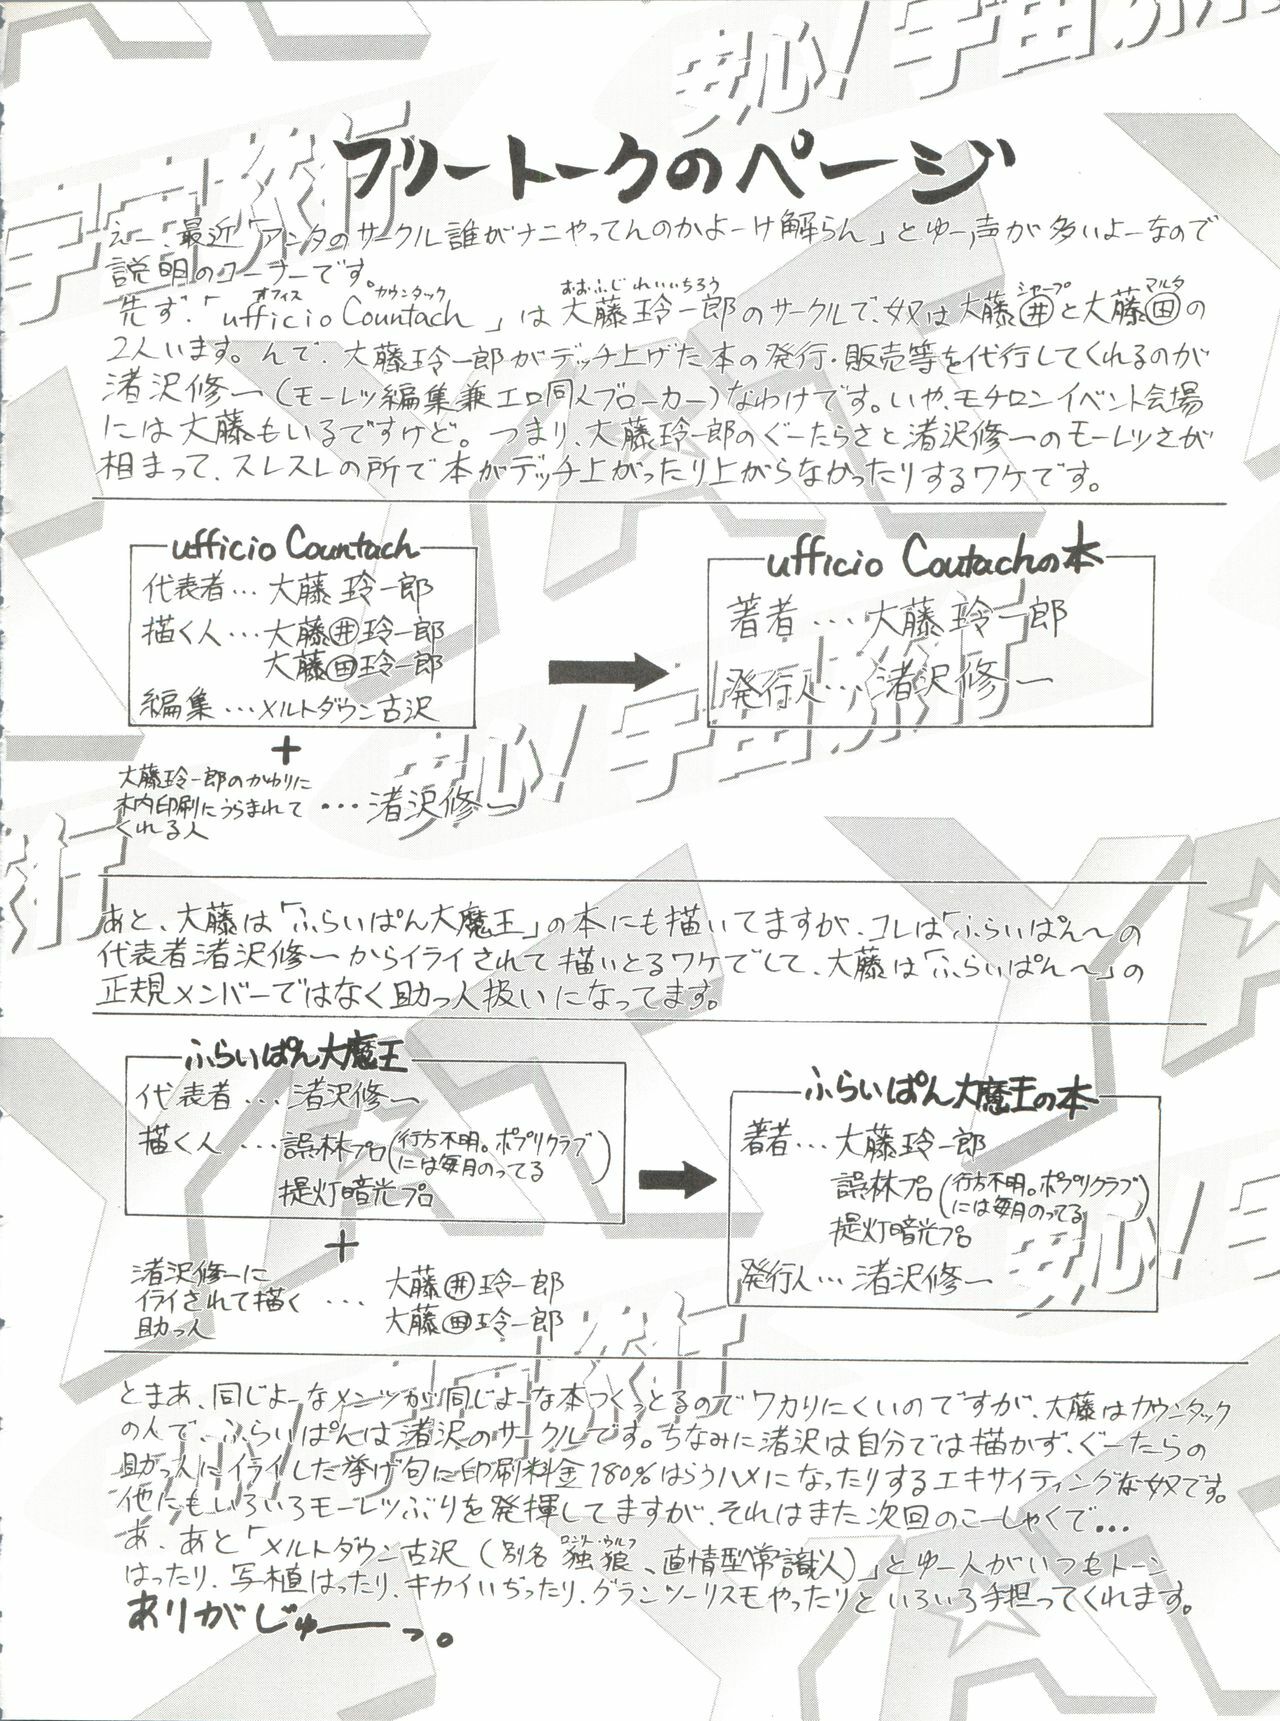 フリートークのページ
えー、最近「アンタのサークル誰がナニやってんのかよーけ解らん」とゆー声が多いよーなので
説明のコーナーです。
オフィス カウンタック おおふじ れいいちろう シャープ マルタ
先ず、「ufficio Countach」は大藤玲一郎のサークルで、奴は大藤㊉と大藤㊉の
2人います。んで、大藤玲一郎がデッチ上げた本の発行・販売等を代行してくれるのが
渚沢修一(モーレツ編集兼エロ同人ブローカー)なわけです。いや、モチロンイベント会場
には大藤もいるですけど。つまり、大藤玲一郎のぐーたらさと渚沢修一のモーレツさが
相まって、スレスレの所で本がデッチ上がったり上がらなかったりするワケです。
ufficio Countach
代表者…大藤玲一郎
描く人…大藤(井)玲一郎
大藤(田)玲一郎
編集…メルトダウン古沢
+
大藤玲一郎のかわりに
木内印刷にうらまれて
くれる人
…渚沢修一
ufficio Coutachの本
著者…大藤玲一郎
発行人…渚沢修一
あと、大藤は「ふらいぱん大魔王」の本にも描いてますが、コレは「ふらいぱん〜の
代表者渚沢修一からイライされて描いとるワケでして、大藤は「ふらいぱん〜」の
正規メンバーではなく助っ人扱いになってます。
ふらいぱん大魔王
代表者…渚沢修一
描く人…誤林プロ(行方不明。ポプリクラブ
には毎月のってる)
提灯暗光プロ
+
渚沢修一に
イライされて描く
助っ人
…大藤(井)玲一郎
大藤(田)玲一郎
ふらいぱん大魔王の本
著者…大藤玲一郎
誤林プロ(行方不明。ポプリクラブ
には毎月のってる)
提灯暗光プロ
発行人…渚沢修一
とまあ、同じよーなメンツが同じよーな本つくっとるのでワカりにくいのですが、大藤はカウンタック
の人で、ふらいぱんは渚沢のサークルです。ちなみに渚沢は自分では描かず、ぐーたらの
助っ人にイライした挙げ句に印刷料金180%はらうハメになったりするエキサイティングな奴です。
他にもいろいろモーレツぶりを発揮してますが、それはまた次回のこーしゃくで…
ロンリー・ウルフ
あ、あと「メルトダウン古沢(別名 独狼、直情型常識人)」とゆー人がいつもトーン
はったり、写植はったり、キカイいぢったり、グランツーリスモやったりといろいろ手担ってくれます。
ありがじゅーっ。
安心!宇宙旅行
YAT